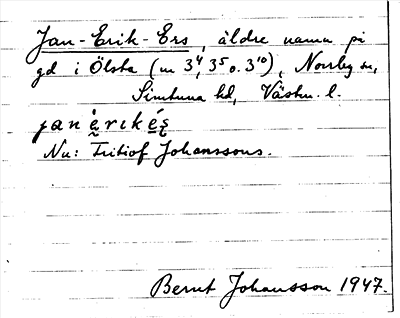 Jan-Erik-Ers, äldre namn på
gd i Ölsta (m 3⁴, 3⁵ o. 3¹⁰), Norrby sn,
Simtuna hd, Västm. l.
jan èrikés
Nu: Fritiof Johanssons.
Bernt Johansson 1947.